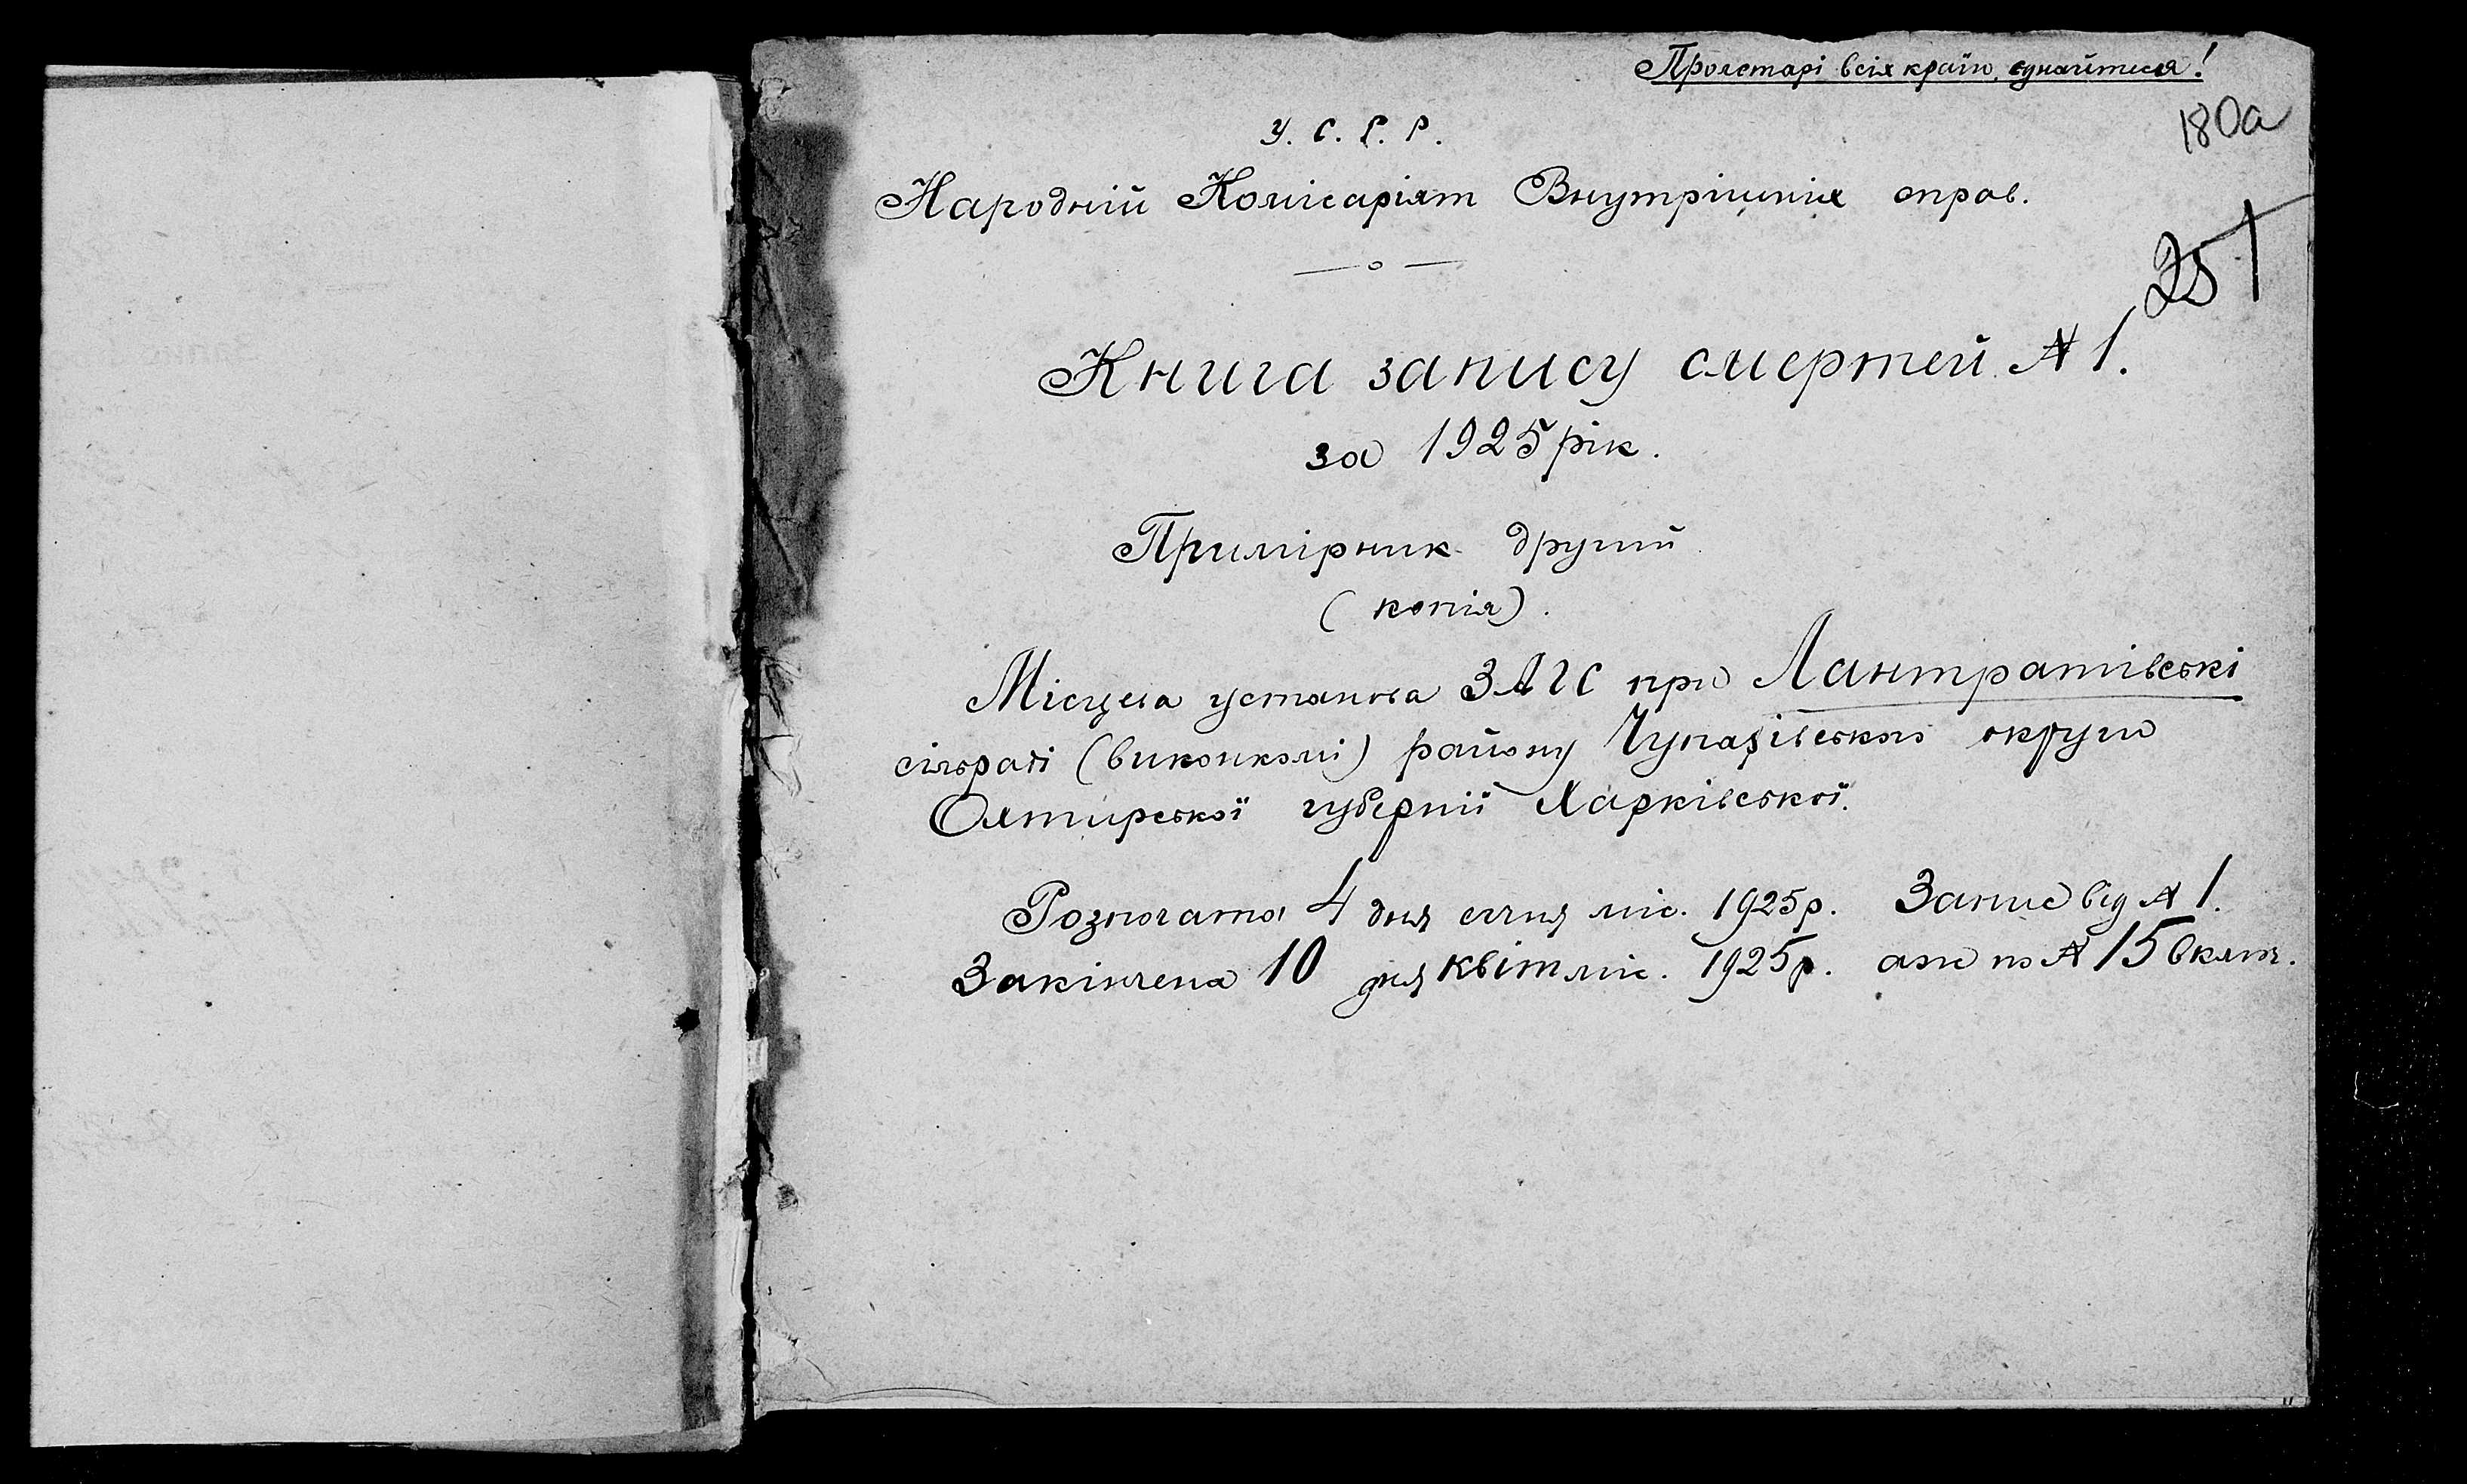 Пролетарі всіх країн, єднайтеся!
180а
У. С. Р. Р.
Народній Комісаріят Внутрішніх справ.
251
Книга запису смертей № 1.
за 1925 рік.
Примірник другий
(копія).
Місцева установа ЗАГС при Лантратівські
сільраді (виконкомі) району Чупахівського округи
Охтирської губернії Харківської.
Розпочата 4 дня січня міс. 1925 р. Запис від № 1.
Закінчена 10 дня квіт міс. 1925 р. аж по № 15 включ.